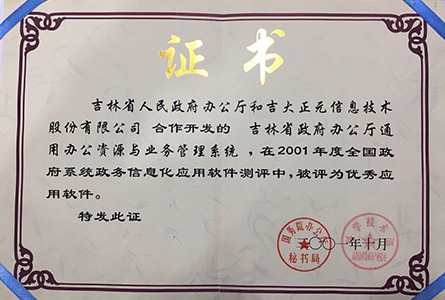 证书
吉林省人民政府办公厅和吉大正元信息技术
股份有限公司 合作开发的 吉林省政府办公厅通
用办公资源与业务管理系统，在2001年度全国政
府系统政务信息化应用软件测评中，被评为优秀
应用软件。
特发此证
国务院办公厅
秘书局
学技术
二〇〇一年十月